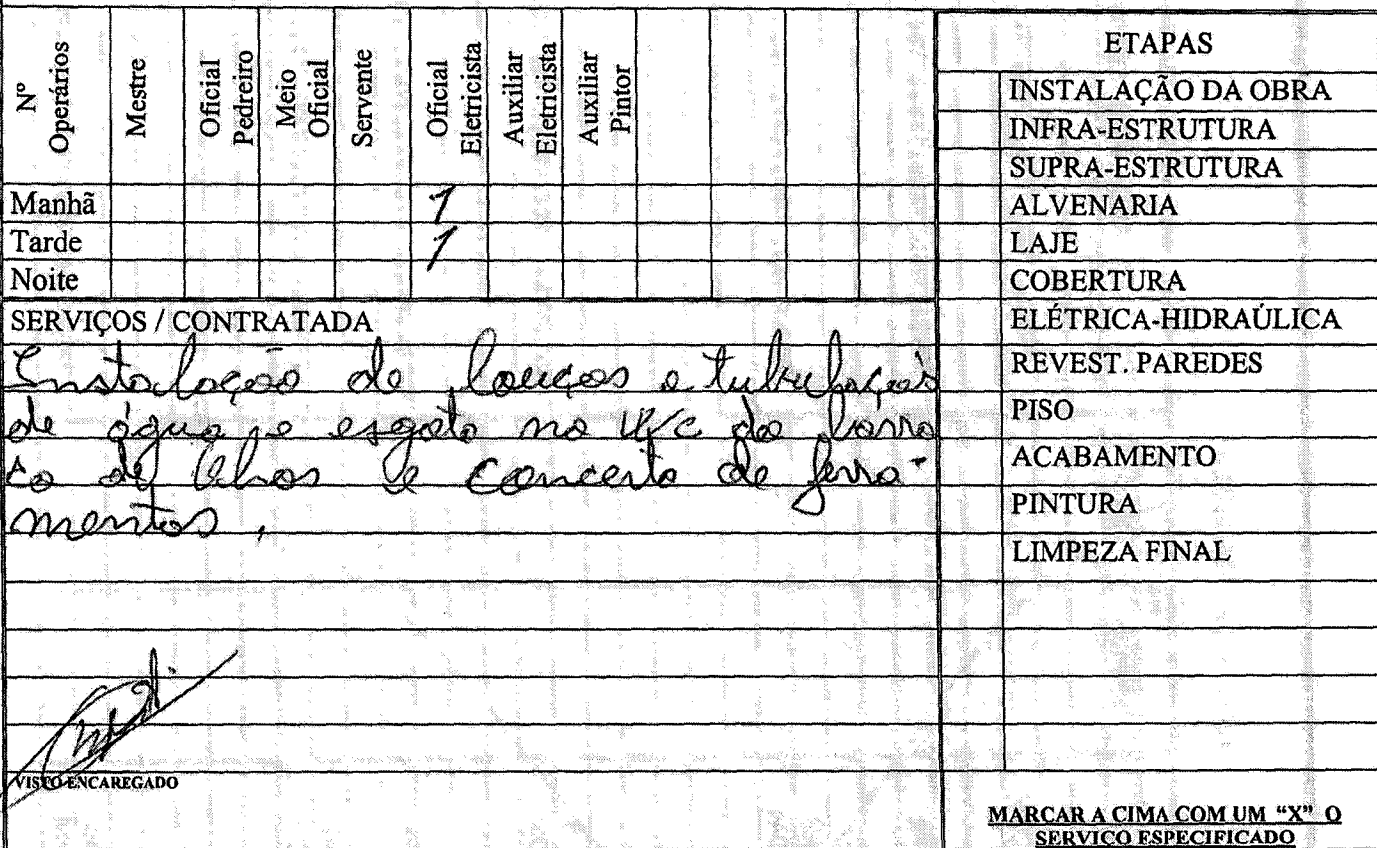 Nº Operários
Mestre
Oficial Pedreiro
Meio Oficial
Servente
Oficial Eletricista
Auxiliar Eletricista
Auxiliar Pintor
Manhã 1
Tarde 1
Noite
SERVIÇOS / CONTRATADA
Instalação de louças e tubulações
de água e esgoto no W/C do barra
co de e concerto de ferra-
mentas,
VISTO ENCAREGADO
ETAPAS
INSTALAÇÃO DA OBRA
INFRA-ESTRUTURA
SUPRA-ESTRUTURA
ALVENARIA
LAJE
COBERTURA
ELÉTRICA-HIDRAÚLICA
REVEST. PAREDES
PISO
ACABAMENTO
PINTURA
LIMPEZA FINAL
MARCAR A CIMA COM UM “X” O
SERVIÇO ESPECIFICADO